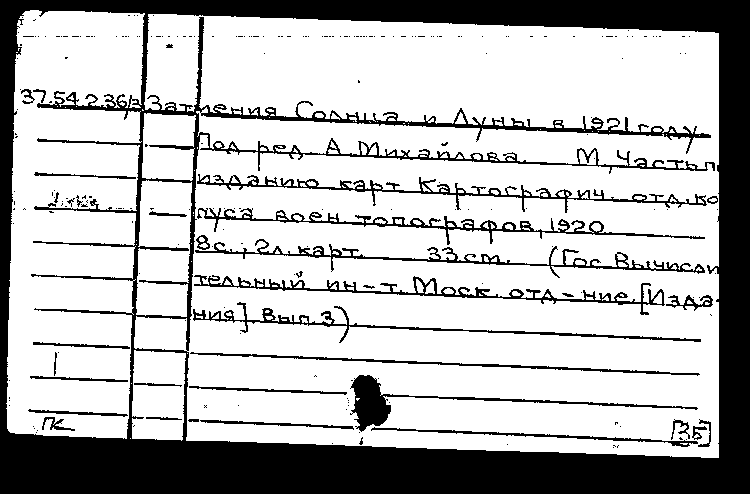 37.54.2.36/3 Затмения Солнца и Луны в 1921 году
Под ред. А. Михайлова. М, Часть п
изданию карт Картографич. отд. ко
пуса воен. топографов, 1920.
8с.; 2л. карт. 33 cm. (Гос. Вычисли
тельный ин-т. Моск. отд-ние. [Изда-
ния]. Вып. 3).
ПК
[35]